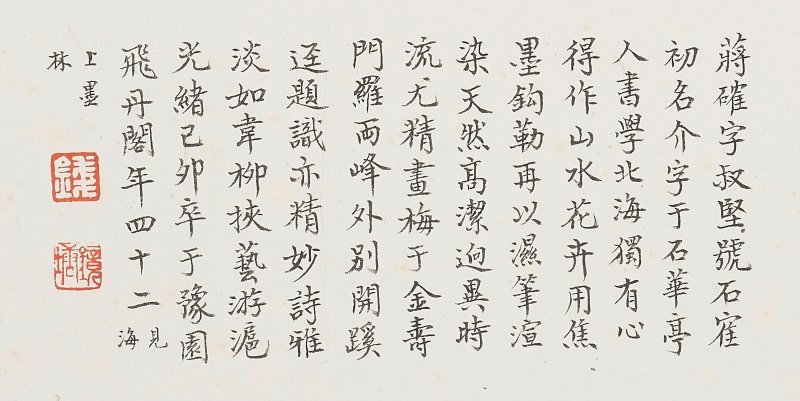 蔣確字叔堅號石寉
初名介字于石華亭
人書學北海獨有心
得作山水花卉用焦
墨鈎勒再以濕筆渲
染天然高潔迥異時
流尤精畫梅于金壽
門羅兩峰外別開蹊
逕題識亦精妙詩雅
淡如韋柳挾藝游滬
光緒己卯卒于豫園
飛丹閣年四十二見海
上墨林